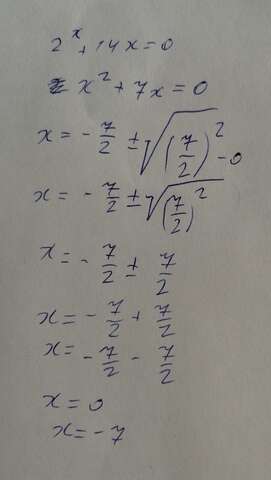 2^x + 14x = 0
x² + 7x = 0
x = - 7/2 ± √((7/2)² - 0)
x = - 7/2 ± √((7/2)²)
x = - 7/2 ± 7/2
x = - 7/2 + 7/2
x = - 7/2 - 7/2
x = 0
x = - 7